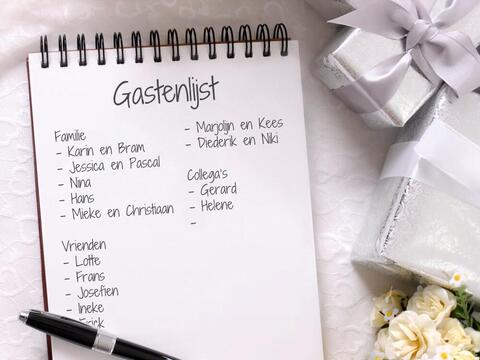 Gastenlijst
Familie
- Karin en Bram
- Jessica en Pascal
- Nina
- Hans
- Mieke en Christiaan
Vrienden
- Lotte
- Frans
- Josefien
- Ineke
- Marjolijn en Kees
- Diederik en Niki
Collega's
- Gerard
- Helene
-